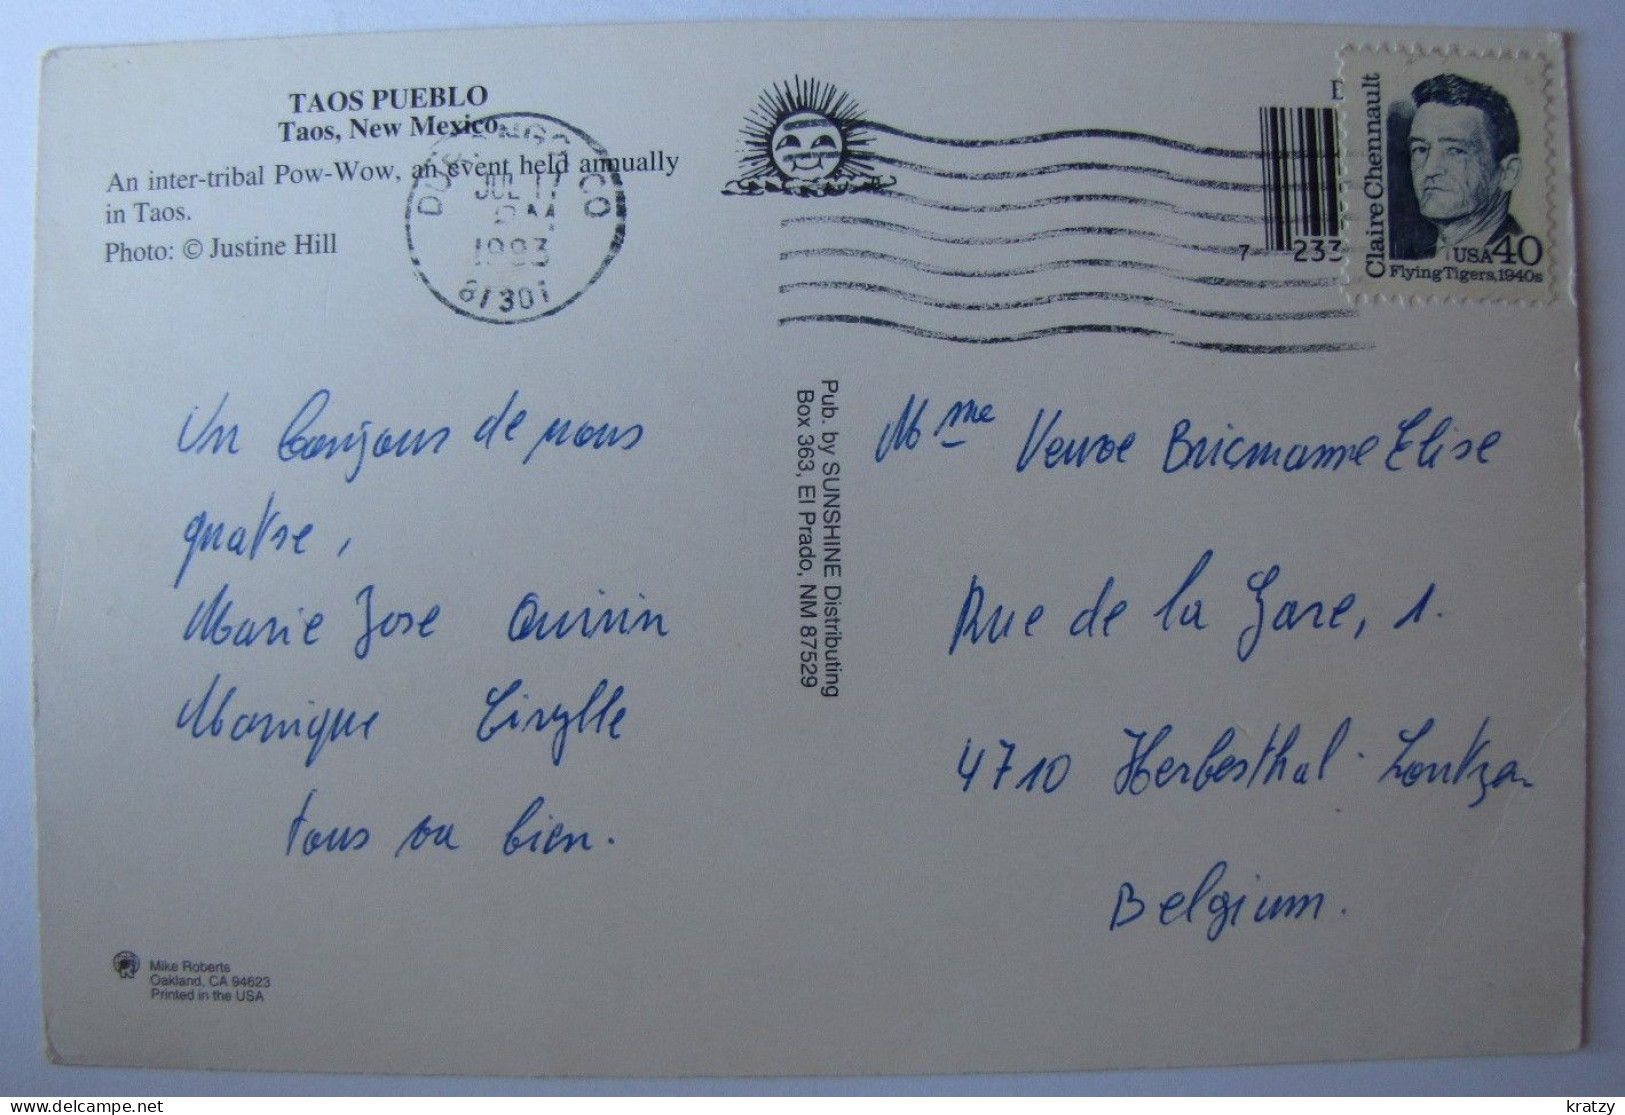 TAOS PUEBLO
Taos, New Mexico
An inter-tribal Pow-Wow, an event held annually
in Taos.
Photo: © Justine Hill
DURANGO CO
JUL 17
PM
1993
81301
7 233
Claire Chennault
USA 40
Flying Tigers, 1940s
Un bonjour de nous
quatre,
Marie José Quirin
Monique Cirylle
tous va bien.
Pub. by SUNSHINE Distributing
Box 363, El Prado, NM 87529
Mme Veuve Bricmanne Elise
Rue de la Gare, 1.
4710 Herbesthal - Lontzen
Belgium.
Mike Roberts
Oakland, CA 94623
Printed in the USA
kratzy